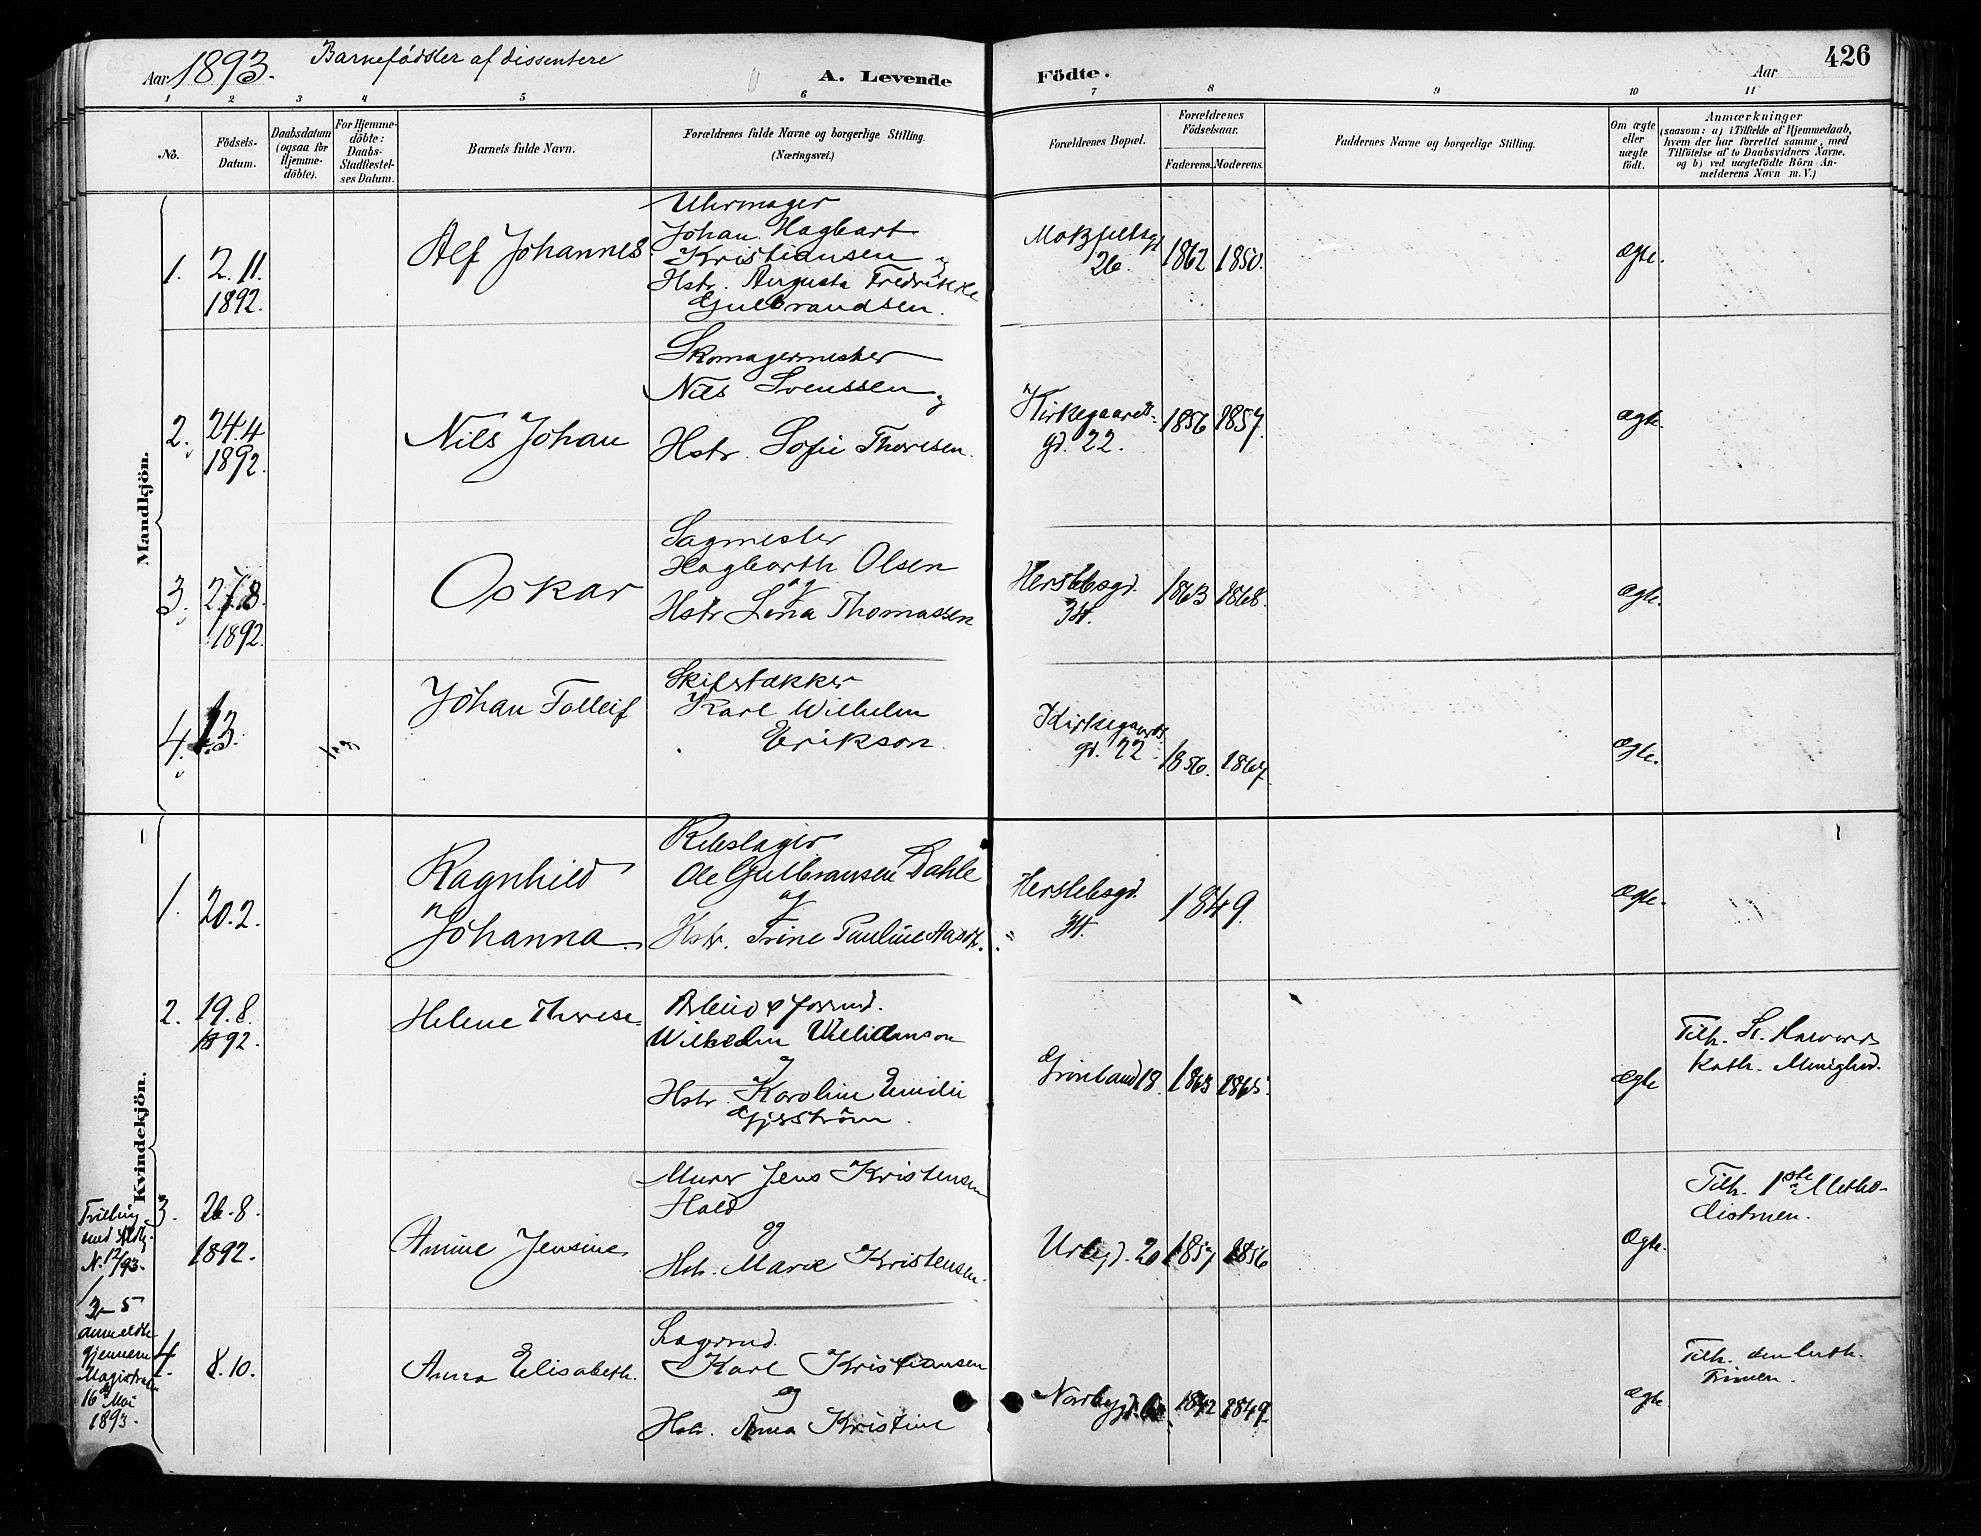 Aar 1893. Barnefödsler af dissentere
A. Levende Födte.
Aar
426
1 2 3 4 5 6 7 8 9 10 11
No.
Födsels-
Datum.
Daabsdatum
(ogsaa for
Hjemme-
döbte).
For Hjemme-
döbte:
Daabs-
Stadfæstel-
ses Datum.
Barnets fulde Navn.
Forældrenes fulde Navne og borgerlige Stilling.
(Næringsvei.)
Forældrenes Bopæl.
Forældrenes
Födselsaar.
Faderens. Moderens.
Faddernes Navne og borgerlige Stilling.
Om ægte
eller
uægte
födt.
Anmærkninger
(saasom: a) i Tilfælde af Hjemmedaab,
hvem der har forrettet samme, med
Tilföielse af to Daabsvidners Navne.
og b) ved uægtefödte Börn An-
melderens Navn m. V.)
Mandkjön.
1.
2. 11.
1892.
Alf Johannes
Uhrmager
Johan Hagbart
Kristiansen og
Hstr. Augusta Fredrikke
Gulbrandsen.
26.
1862 1850.
ægte.
2.
24.4
1892.
Nils Johan
Skomagermester
Nils Svenssen og
Hstr. Sofie Thoresen.
Kirkegaards-
gd. 22.
1856 1857.
ægte.
3.
27.8.
1892.
Oskar
Sagmester
Hagbarth Olsen
og
Hstr Lina Thomassen
Herslebsgd.
34.
1863 1868.
ægte.
4.
13.
Johan Tolleif
Karl Wilhelm
Erikson.
Kirkegaards
gd. 22
1856. 1867.
ægte.
Kvindekjön.
1.
20.2.
Ragnhild
Johanna.
Rebslager
Ole Gulbransen Dahle
og
Hstr. Trine Pauline
Herslebsgd.
34.
1849.
ægte.
2.
19.8.
1892.
Helene Therese.
Wilhelm
og
Hstr. Karoline Emilie
Grönland 18.
1863 1865.
ægte
Tilh. St. Halvards
Kath. Menighed.
3.
26.8.
1892.
Amine Jensine.
Murer Jens Kristensen
Hald
og
Hstr. Marie Kristensen.
Urtegd. 20
1857 1856
ægte.
Tilh. 1ste Metho-
distmen.
Trilling
med
N. 12/93.
3-5
anmeldte
gjennem
Magistraten
16 Mai
1893.
4.
8.10.
Anna Elisabeth.
Lagermd.
Karl Kristiansen
og
Hstr. Anna Kristine
Norbygd.
1842 1849.
ægte
Tilh. den luth.
Frimen.